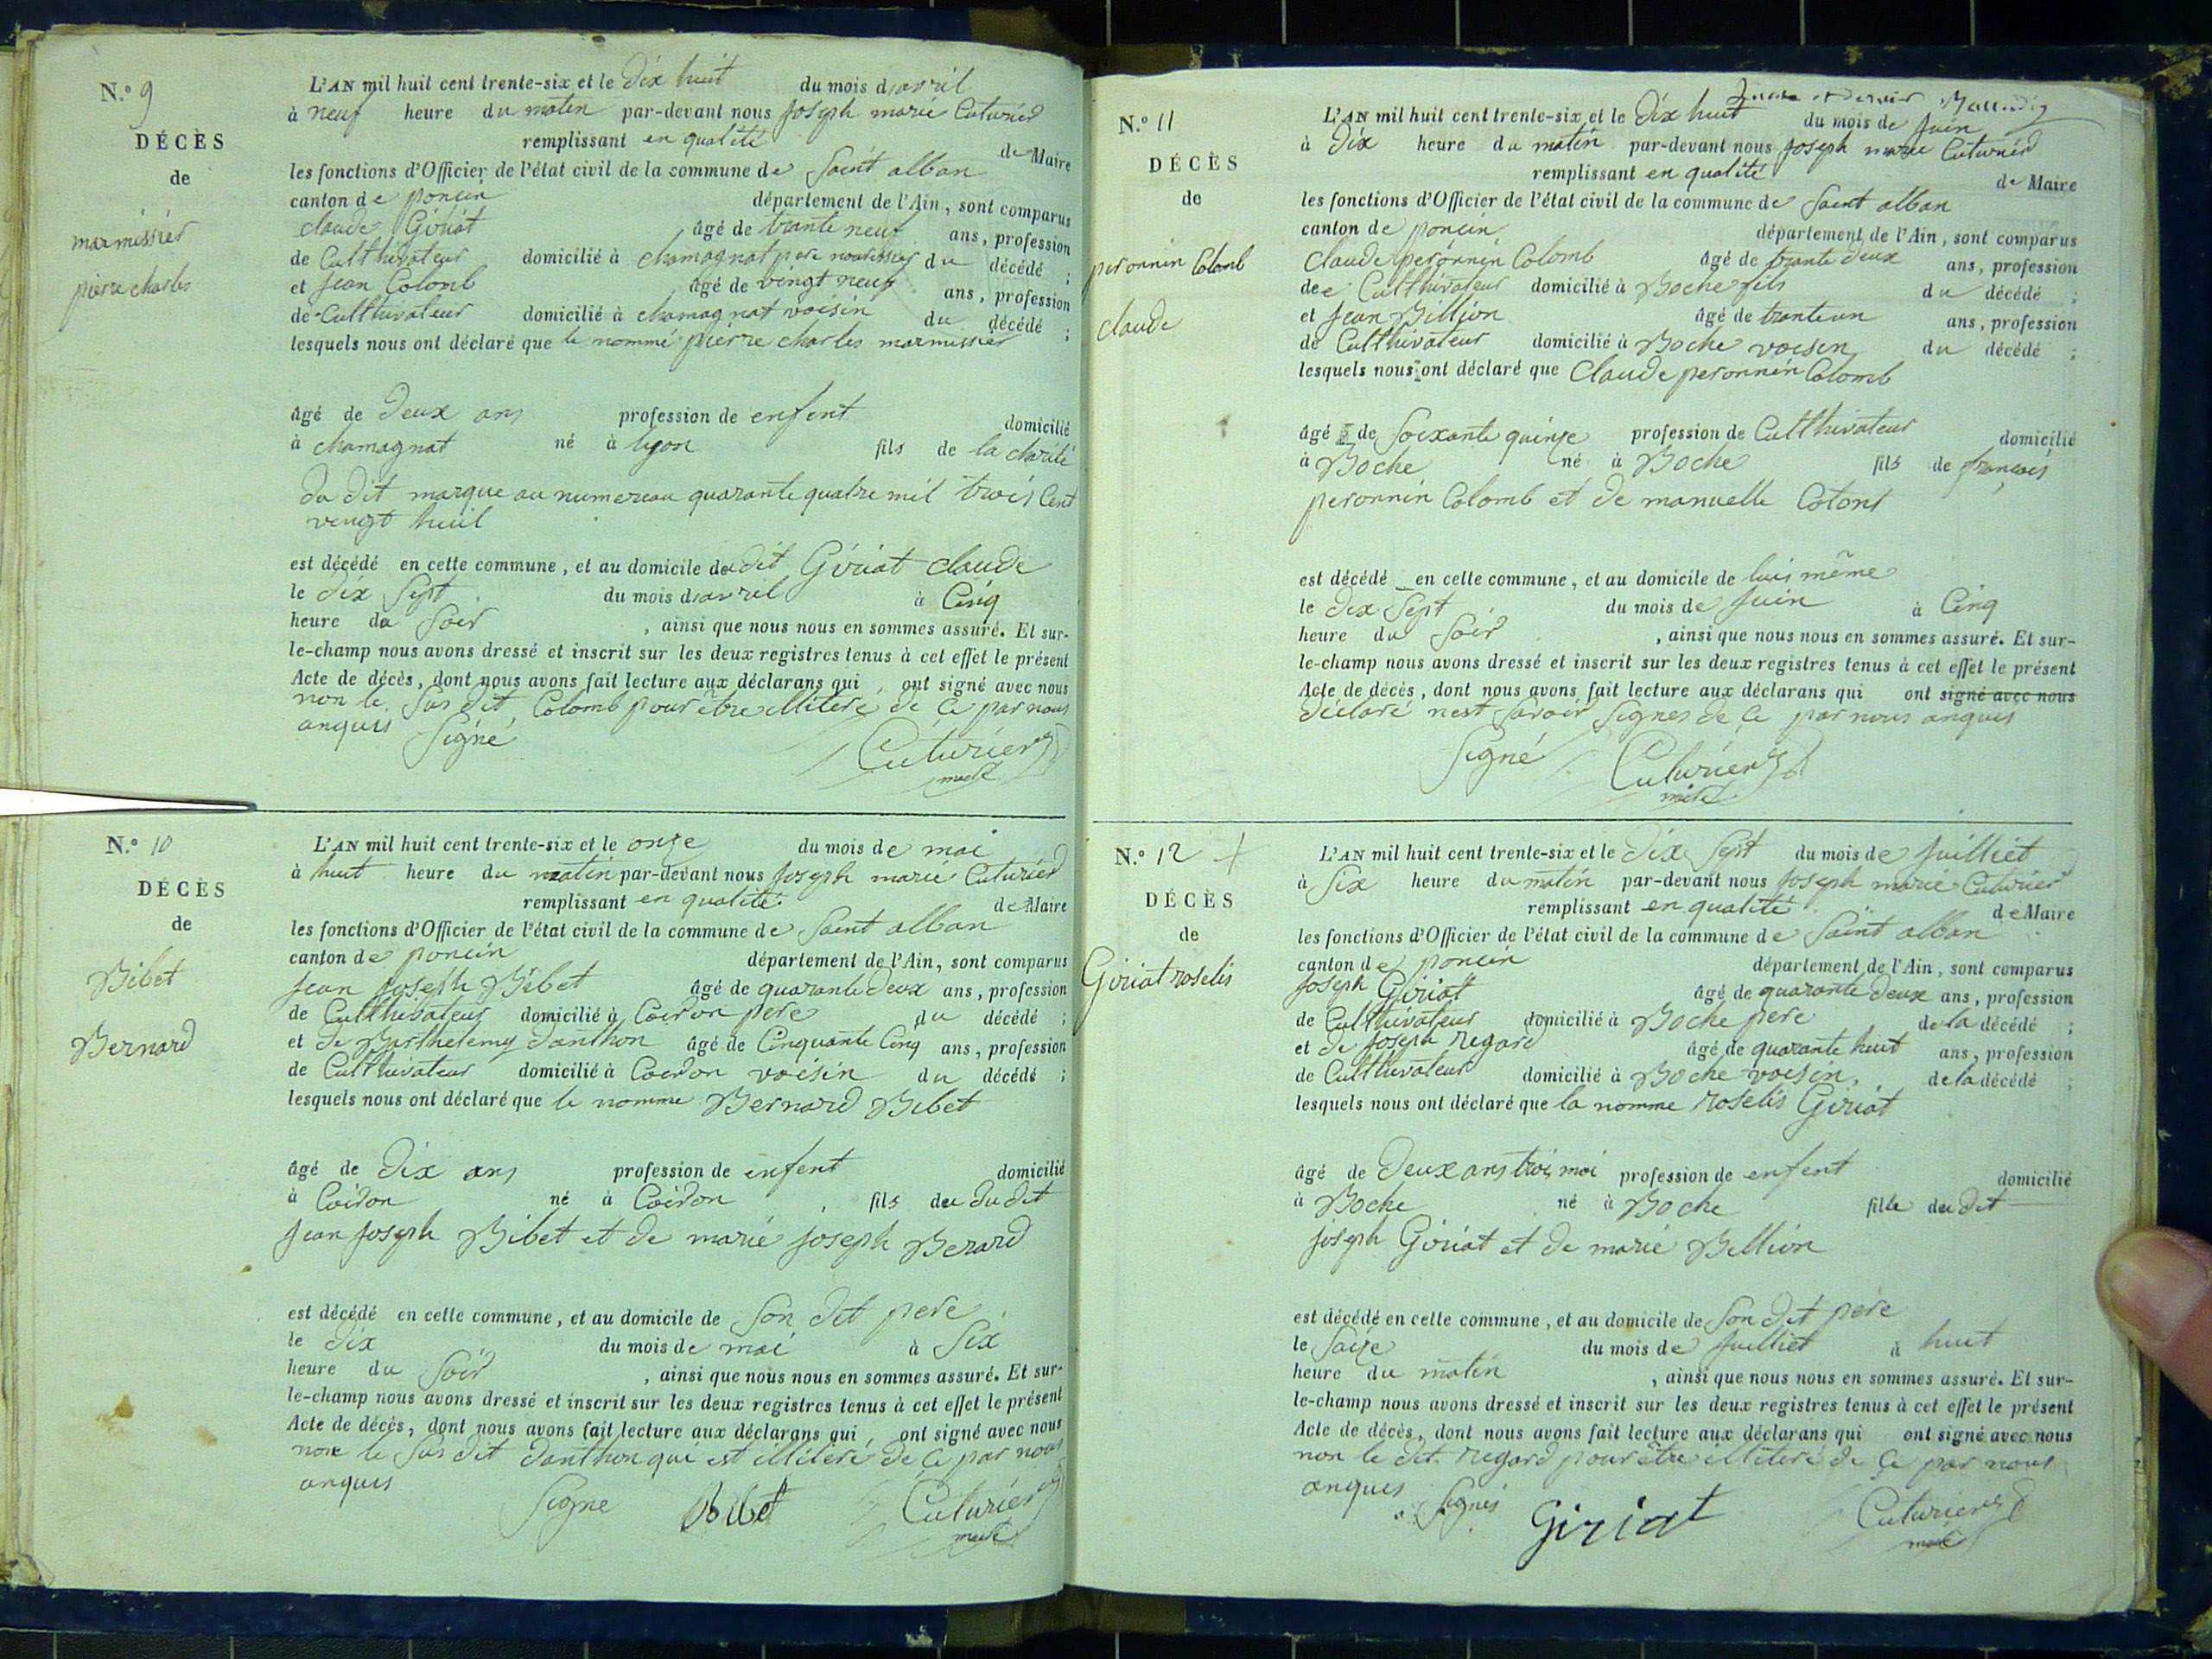 N.° 9
DÉCÈS
de
marmissier
pierre charles
L'AN mil huit cent trente-six et le dix huit du mois d'avril
à neuf heure du matin par-devant nous joseph marie Cuturier
remplissant en qualité de Maire
les fonctions d'Officier de l'état civil de la commune de Saint alban
canton de poncin département de l'Ain, sont comparus
claude Giriat âgé de trante neuf ans, profession
de Culthivateur domicilié à chamagnat pere nourissier du décédé ;
et jean Colomb âgé de vingt neuf ans, profession
de Culthivateur domicilié à chamagnat voisin du décédé ;
lesquels nous ont déclaré que le nommé pierre charles marmissier
âgé de deux ans profession de enfent domicilié
à chamagnat né à lyon fils de la charité
du dit marque au numereau quarante quatre mil trois Cent
vingt huit
est décédé en cette commune, et au domicile du dit Giriat claude
le dix Sept du mois d'avril à Cinq
heure du Soir , ainsi que nous nous en sommes assuré. Et sur-
le-champ nous avons dressé et inscrit sur les deux registres tenus à cet effet le présent
Acte de décès, dont nous avons fait lecture aux déclarans qui , ont signé avec nous
non le Sus dit Colomb pour être illiteré de Ce par nous
anquis Signé
Cuturier
maire
N.° 10
DÉCÈS
de
Bibet
Bernard
L'AN mil huit cent trente-six et le onze du mois de mai
à huit heure du matin par-devant nous joseph marie Cuturier
remplissant en qualité de Maire
les fonctions d'Officier de l'état civil de la commune de Saint alban
canton de poncin département de l'Ain, sont comparus
jean joseph Bibet âgé de quarante deux ans, profession
de Culthivateur domicilié à Coiron pere du décédé ;
et de Barthelemy danthon âgé de Cinquante Cinq ans, profession
de Culthivateur domicilié à Coiron voisin du décédé ;
lesquels nous ont déclaré que le nomme Bernard Bibet
âgé de dix ans profession de enfent domicilié
à Coiron né à Coiron fils du du dit
jean joseph Bibet et de marie joseph Berard
est décédé en cette commune, et au domicile de Son dit pere
le dix du mois de mai à Six
heure du Soir , ainsi que nous nous en sommes assuré. Et sur-
le-champ nous avons dressé et inscrit sur les deux registres tenus à cet effet le présent
Acte de décès, dont nous avons fait lecture aux déclarans qui , ont signé avec nous
non le Sus dit danthon qui est illiteré de Ce par nous
anquis Signe Bibet Cuturier
maire
N.° 11
DÉCÈS
de
peronnin Colomb
claude
L'AN mil huit cent trente-six et le dix huit du mois de juin
à dix heure du matin par-devant nous joseph marie Cuturier
remplissant en qualité de Maire
les fonctions d'Officier de l'état civil de la commune de Saint alban
canton de poncin département de l'Ain, sont comparus
Claude peronnin Colomb âgé de trante deux ans, profession
de Culthivateur domicilié à Boche fils du décédé ;
et jean Billion âgé de trante un ans, profession
de Culthivateur domicilié à Boche voisin du décédé ;
lesquels nous ont déclaré que Claude peronnin Colomb
âgé de Soixante quinze profession de Culthivateur domicilié
à Boche né à Boche fils de françois
peronnin Colomb et de manuelle
est décédé en cette commune, et au domicile de luis même
le dix Sept du mois de juin à Cinq
heure du Soir , ainsi que nous nous en sommes assuré. Et sur-
le-champ nous avons dressé et inscrit sur les deux registres tenus à cet effet le présent
Acte de décès, dont nous avons fait lecture aux déclarans qui ont signé avec nous
déclaré nest Savoir Signer de Ce par nous anquis
Signé Cuturier
maire
N.° 12
DÉCÈS
de
Giriat roselis
L'AN mil huit cent trente-six et le dix Sept du mois de juilliet
à Six heure du matin par-devant nous joseph marie Cuturier
remplissant en qualité de Maire
les fonctions d'Officier de l'état civil de la commune de Saint alban
canton de poncin département de l'Ain, sont comparus
joseph Giriat âgé de quarante deux ans, profession
de Culthivateur domicilié à Boche pere de la décédé ;
et de joseph regard âgé de quarante huit ans, profession
de Culthivateur domicilié à Boche voisin, de la décédé ;
lesquels nous ont déclaré que la nomme roselis Giriat
âgé de deux ans trois moi profession de enfent domicilié
à Boche né à Boche fille du dit
joseph Giriat et de marie Billion
est décédé en cette commune, et au domicile de Son dit père
le Saize du mois de juilliet à huit
heure du matin , ainsi que nous nous en sommes assuré. Et sur-
le-champ nous avons dressé et inscrit sur les deux registres tenus à cet effet le présent
Acte de décès, dont nous avons fait lecture aux déclarans qui ont signé avec nous
non le dit regard pour être illiteré de Ce par nous
anques Signés Giriat Cuturier
maire